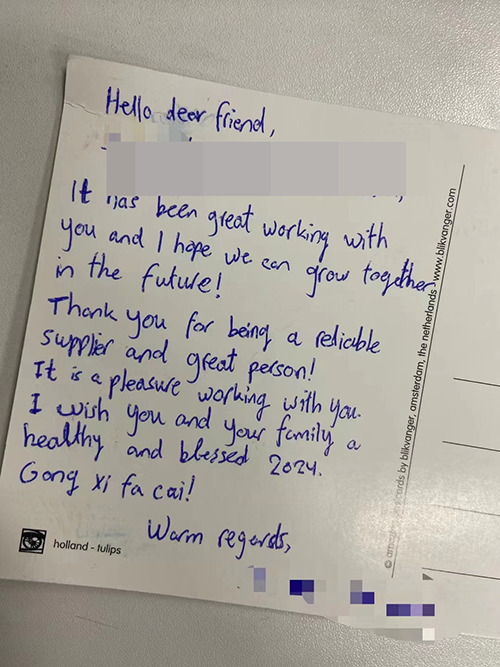 Hello dear friend,
It has been great working with
you and I hope we can grow together
in the future!
Thank you for being a reliable
supplier and great person!
It is a pleasure working with you.
I wish you and your family a
healthy and blessed 2024.
Gong xi fa cai!
Warm regards,
holland - tulips
cards by blikvanger, amsterdam, the netherlands - www.blikvanger.com